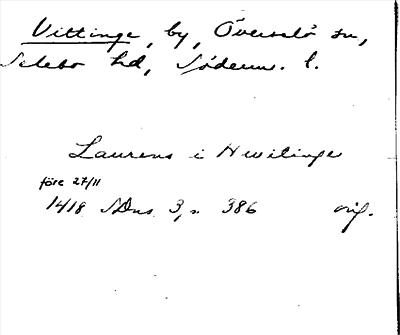 Vittinge, by, Överselö sn,
Selebo hd, Söderm. l.
Laurens i Hwitinge
före 27/11
1418 SDns 3, s. 386 orig.